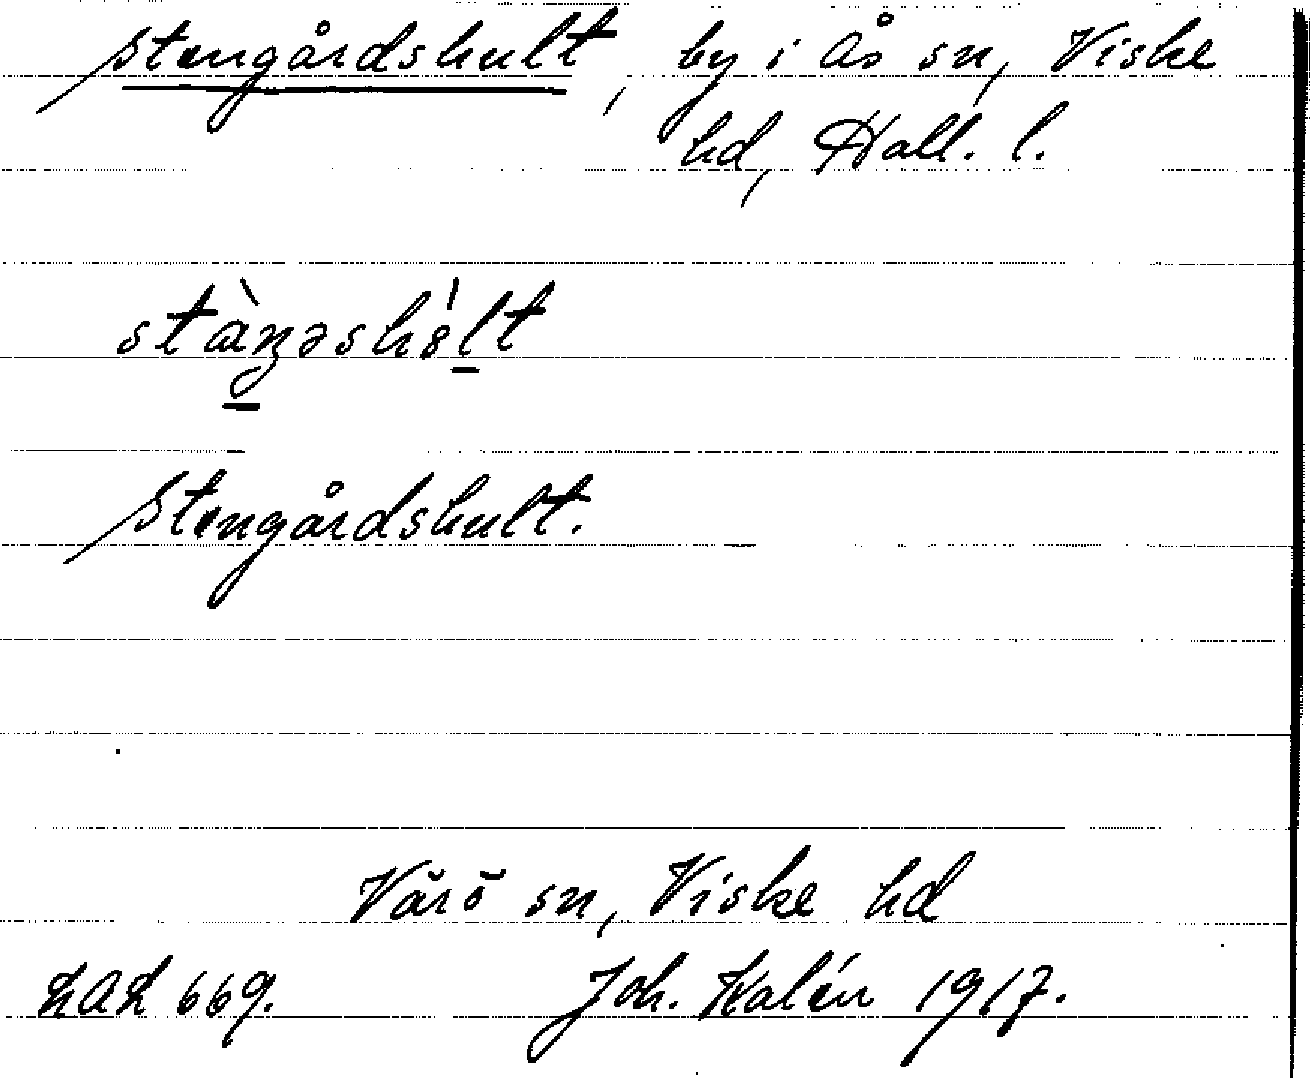 Stengårdshult, by i Ås sn, Viske
hd, Hall. l.
Stengårdshult.
Värö sn, Viske hd
LAL 669. Joh. Kalén 1917.